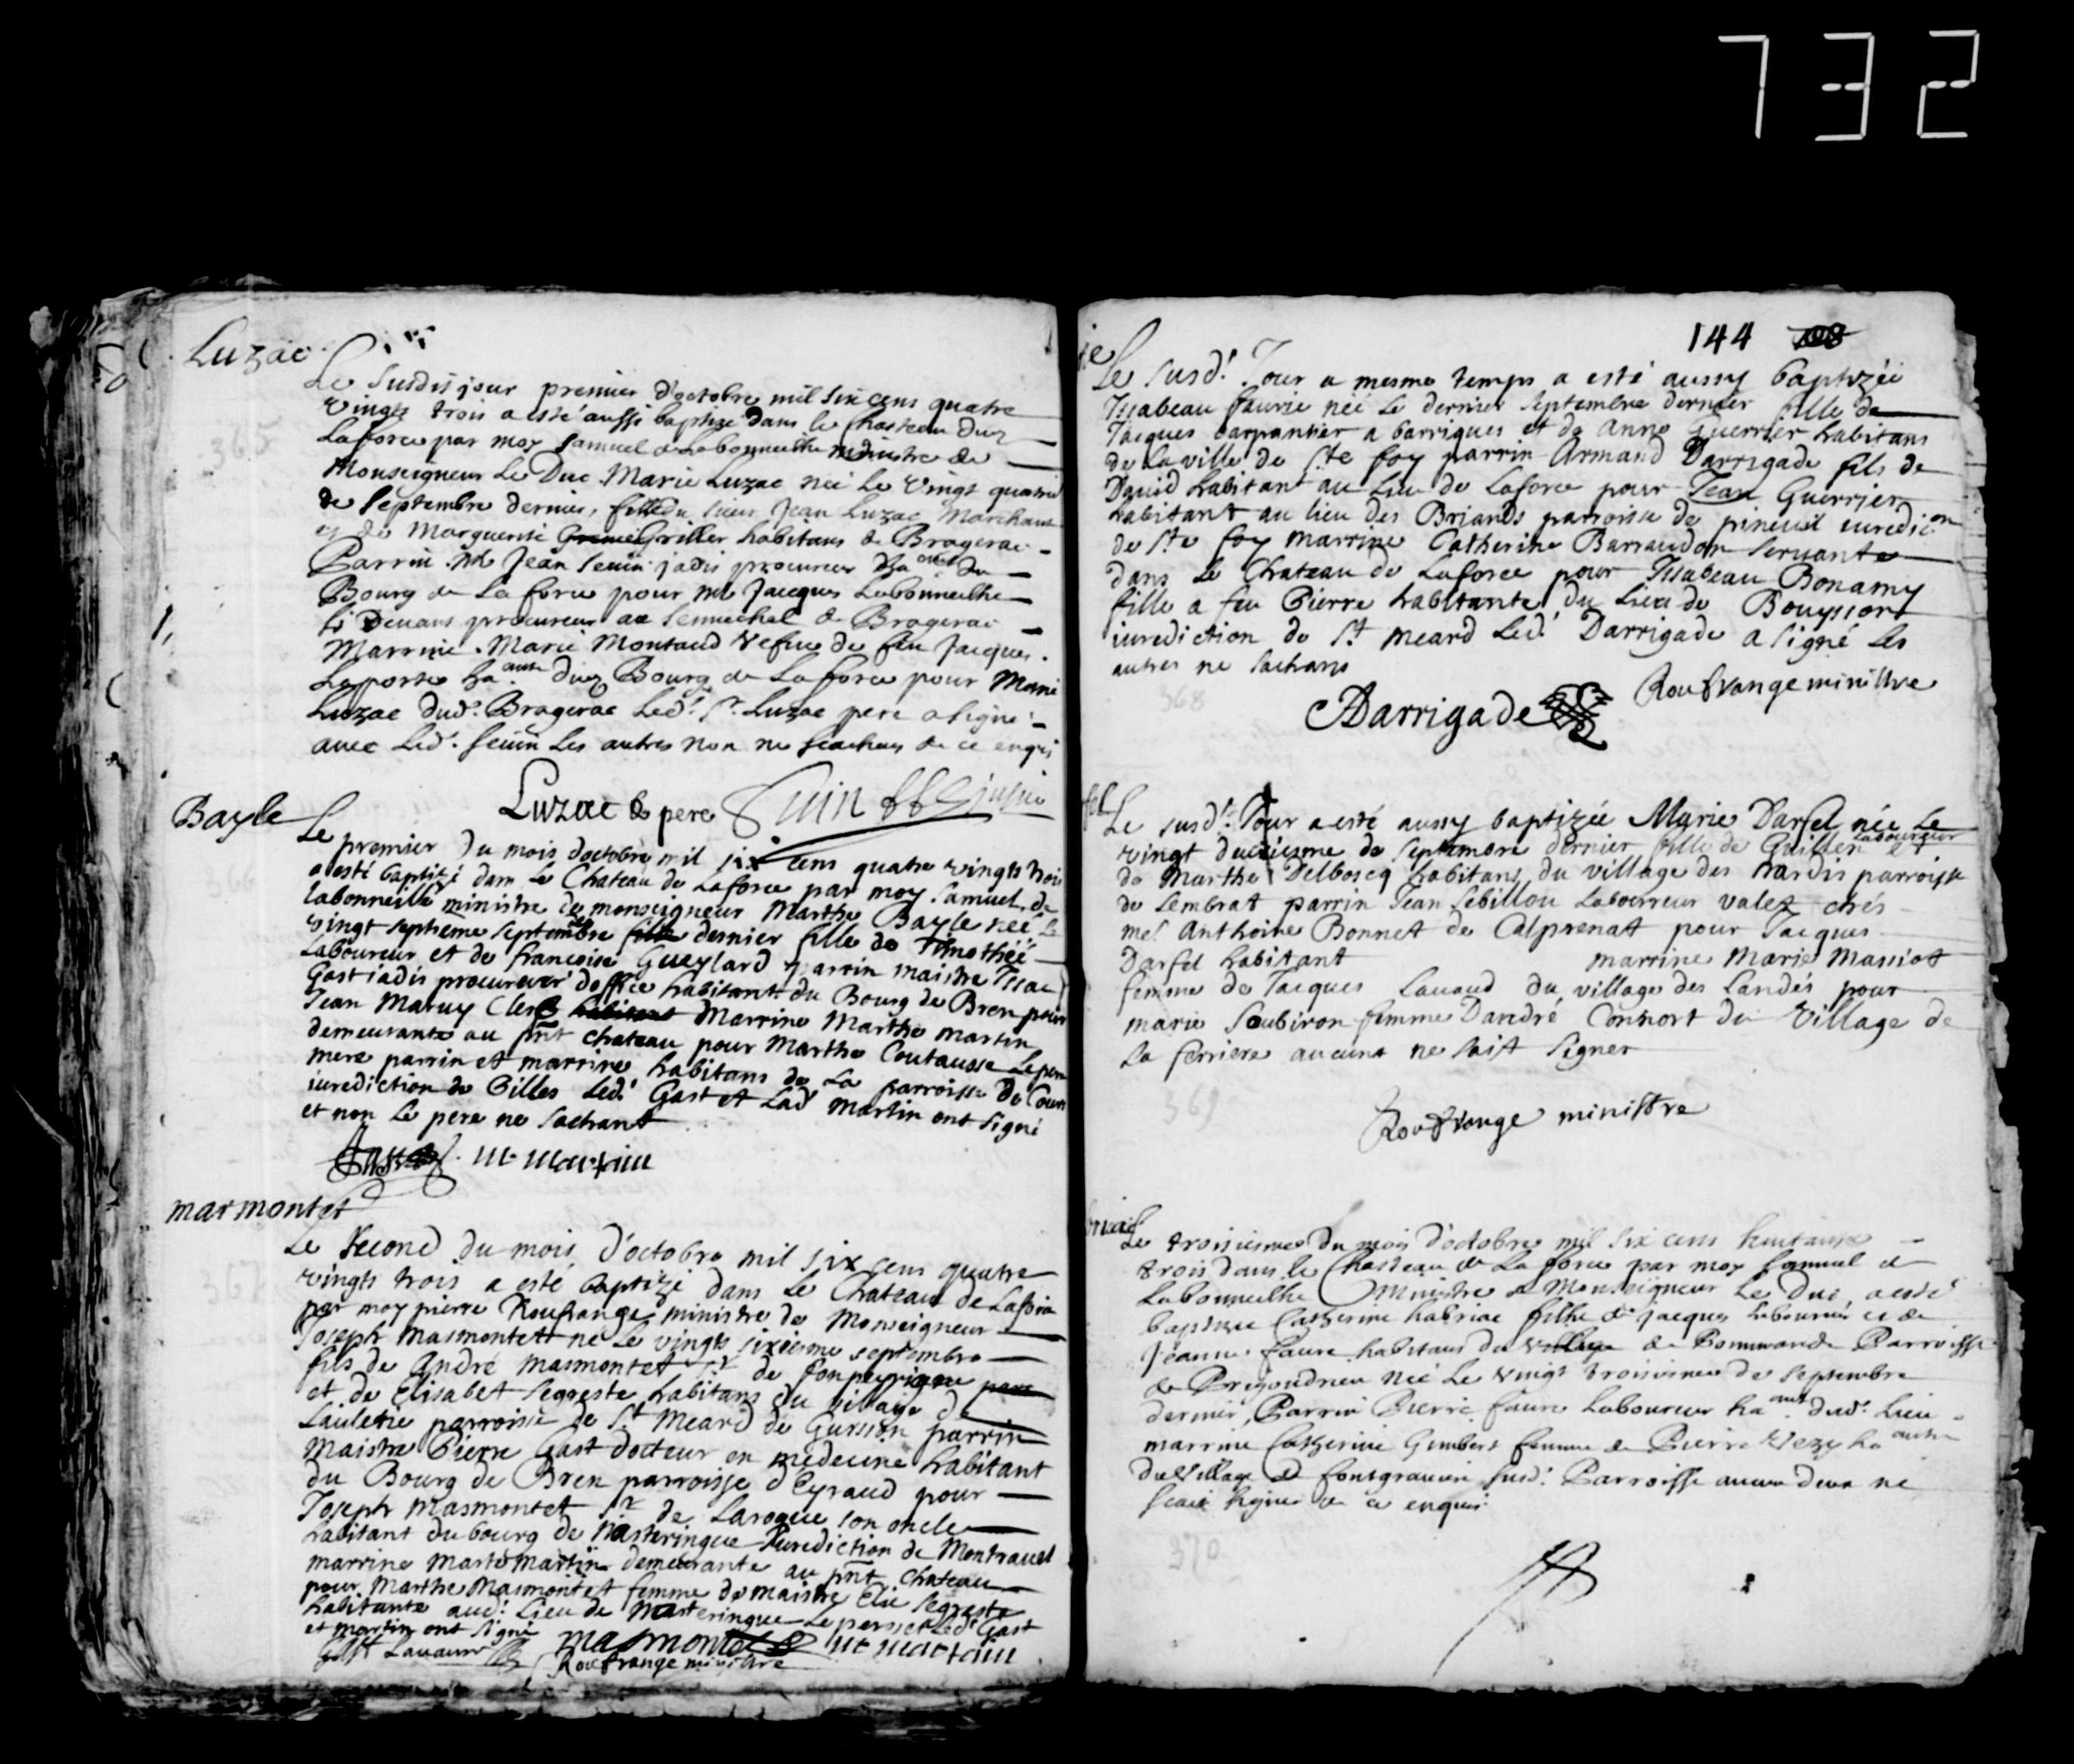 732
Luzac
Le susdit jour premier d'octobre mil six cens quatre
vingts trois a esté aussi baptize dans le Chasteau du
Laforce par moy Samuel de Labonneilhe ministre de
Monseigneur Le Duc Marie Luzac neé Le vingt quatrie
de Septembre dernier, fille du sieur Jean Luzac Marchant
et de Marguerite Griller habitans de Bragerac
Parrin Me Jean Seuin jadis procureur du
Bourg de La force pour Me Jacques Labonneilhe
procureur au Senechal de Bragerac
Marrine Marie Montaud Vefue de feu Jacques
Laporte ha.ante du Bourg de La force pour Marie
Luzac dud. Bragerac Led. Sr. Luzac pere a signé
auec Led. Seuin Les autres non ne scachans de ce enquis
Luzac pere Seuin
Bayle
Le premier du mois doctobre mil six cens quatre vingts trois
a esté baptizé dans Le Chateau de Laforce par moy Samuel de
Labonneille ministre de monseigneur Marthe Bayle neé Le
vingt septieme septembre fille dernier fille de Timothéé
Laboureur et de francoise Gueylard parrin maistre Isaac
Gast iadis procureur doffice habitant du Bourg de Bren pour
Jean Maruy Clerc habitant Marrine Marthe Martin
demeurante au pnt chateau pour Marthe Coutausse Le pere
mere parrin et marrine habitans de La parroisse de Cours
iurediction de Gilles Led. Gast et Lad. Martin ont signé
et non Le pere ne sachant
Gast m martin
marmontet
Le second du mois d'octobre mil six cens quatre
vingts trois a esté baptizé dans Le Chateau de Laforce
par moy pierre Roufrange ministre de Monseigneur
Joseph Masmontet né Le vingts sixiesme septembre
fils de André Masmontet Sr de fonpeyrigne
et de Elisabet Segreste habitans du village de
Lauletie parroisse de St Meard de Gursson parrin
Maistre Pierre Gast docteur en medecine habitant
du Bourg de Bren parroisse d'Eyraud pour
Joseph Masmontet Sr de Laroque son oncle
habitant du bourg de Masteringue Jurediction de Montrauel
marrine Marte Martin demeurante au pnt chateau
pour Marthe Masmontet femme de maistre Elie Segreste
habitante aud. Lieu de Masteringue Le pere et Led. Gast
et Martin ont signé
Gast masmontet m martin
Roufrange ministre
144
Le susd. Jour a mesme temps a esté aussy baptizéé
Isabeau faurie neé Le dernier septembre dernier fille de
Jacques carpantier a barriques et de Anne Guerrier habitans
de La ville de Ste foy parrin Armand Darrigade fils de
Dauid habitant au Lieu de Laforce pour Jean Guerrier
habitant au lieu des Briands parroisse de pineuil iuredicon
de Ste foy marrine Catherine Barraudon seruante
dans Le Chateau de Laforce pour Isabeau Bonamy
fille a feu Pierre habitante du Lieu de Bouysson
iurediction de St Meard Led. Darrigade a signé Les
autres ne sachans
368
Roufrange ministre
Darrigade
Le susd. Jour a esté aussy baptizée Marie Darfel née Le
vingt deuxiesme de septembre dernier fille de Guillen Laboureur et
de Marthe Delboscq habitans du village des hardis parroisse
de Lembrat parrin Jean Sebillou Laboureur valet chés
mel Anthoine Bonnet de Calprenat pour Jacques
Darfel habitant marrine Marie Massiot
femme de Jacques Lauaud du village des Landés pour
marie Soubiron femme Dandré Connort du village de
La ferriere aucuns ne sait signer
369
Roufrange ministre
Le troisiesme du mois d'octobre mil six cens huitante
trois dans le Chasteau de La force par moy Samuel de
Labonneilhe Ministre de Monseigneur Le Duc a esté
baptizée Catherine Labriac fille de Jacques Laboureur et de
Jeanne faure habitans du village de Bonnmarde Parroisse
de Prigondrieu neé Le vingt troisiesme de Septembre
dernier, Parrin Pierre faure Laboureur ha.ant dud. Lieu
marrine Catherine Gimbert femme de Pierre Vezy ha.ante
du Village de fontgrauiere susd. Parroisse aucun deux ne
scait signer de ce enquis
370